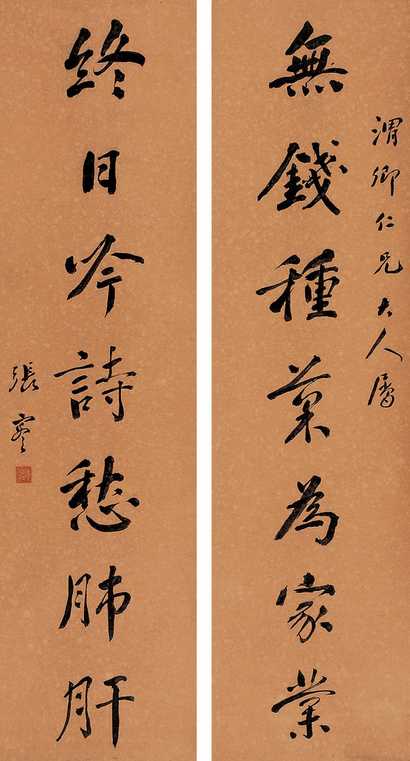 渭卿仁兄大人屬
無錢種菜為家業
終日吟詩愁肺肝
張謇